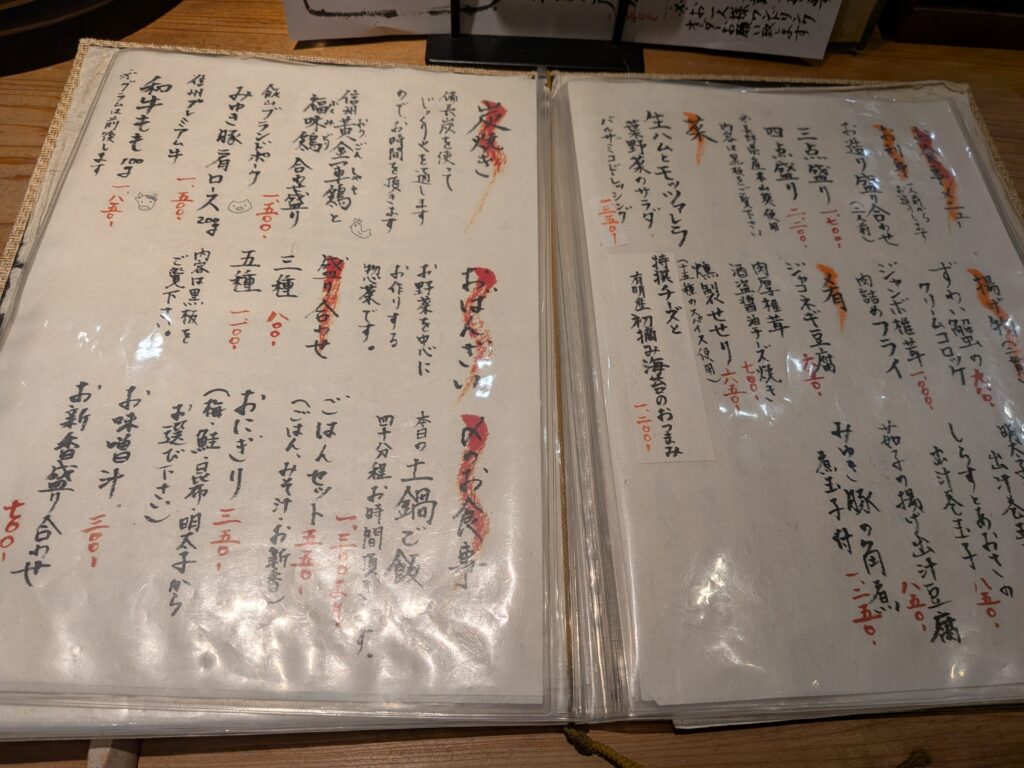 お造り盛り合わせ
(二人前)
三点盛り
一、七〇〇・
四点盛り
二、二〇〇・
内容は黒板をご覧下さい
菜
生ハムとモッツァレラ
葉野菜のサラダ
バルサミコドレッシング
一、二五〇・
ずわい蟹の
クリームコロッケ
九〇〇・
ジャンボ椎茸
肉詰めフライ
肴
ジャコネギ豆腐
六五〇・
肉厚椎茸
酒盗醤油チーズ焼き
七〇〇・
燻製せせり
六五〇・
(十五種のスパイス使用)
将棋チーズと
有明産初摘み海苔のおつまみ
一、二〇〇・
明太子
出汁巻玉子
しらすとあおさの
出汁巻玉子
八五〇・
茄子の揚げ出汁豆腐
八五〇・
みゆき豚の角煮
煮玉子付
一、二五〇・
炭焼き
備長炭を使って
じっくり火を通します
ので、お時間を頂きます
信州黄金軍鶏と
福味鶏 合せ盛り
一、五〇〇・
飯山ブランドポーク
みゆき豚 肩ロース
信州プレミアム牛
一、五〇・
和牛もも 100g
一、八五〇・
※グラムは前後します
おばんざい
お野菜を中心に
お作りする
惣菜です。
盛り合せ
三種
八〇〇・
五種
一、二〇〇・
内容は黒板を
ご覧下さい。
〆のお食事
本日の土鍋ご飯
四十分程お時間頂
す。
ごはんセット
五五〇・
(ごはん、みそ汁、お新香)
おにぎり
三五〇・
(梅、鮭、昆布、明太子から
お選び下さい)
お味噌汁
三〇〇・
お新香盛り合わせ
七〇〇・